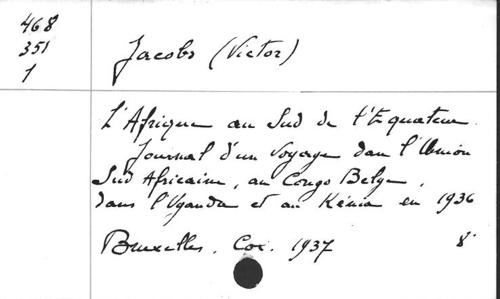 468
351
1
Jacobs (Victor)
L'Afrique au Sud de l'Equateur
Journal d'un Voyage dans l'Union
Sud Africaine, au Congo Belge,
dans l'Uganda et au Kénia en 1936
Bruxelles. Cox. 1937 8°